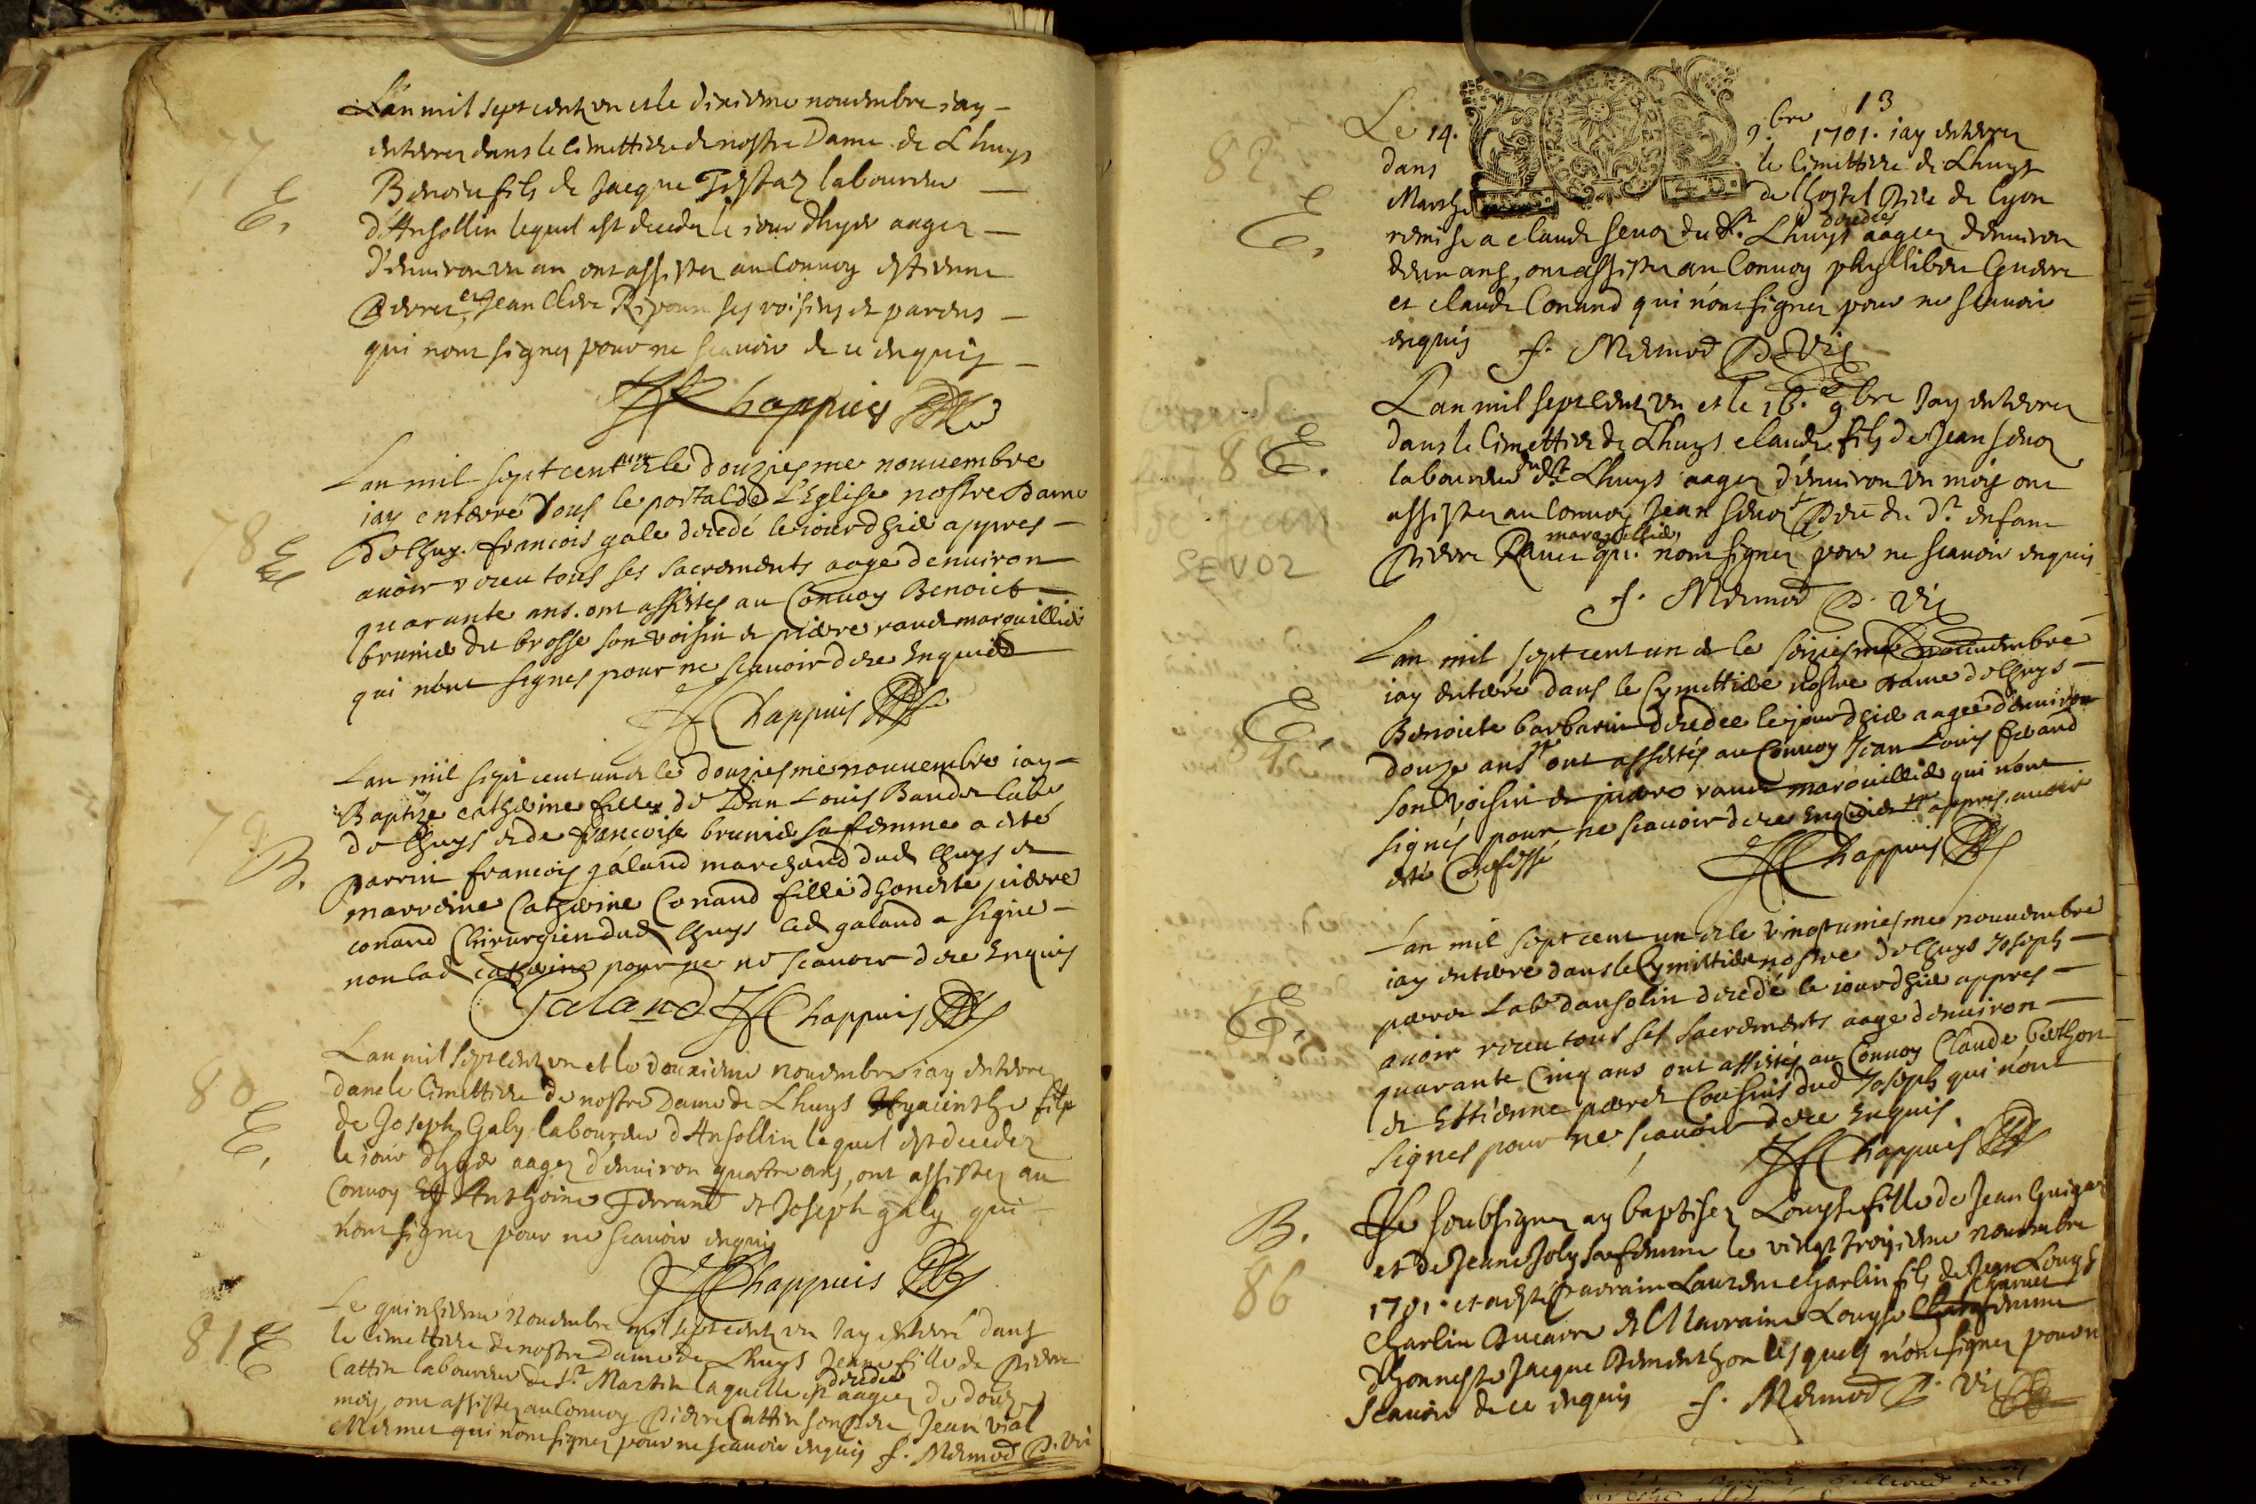 77
E.
L'an mil sept cent un et le dixieme novembre iay
enterrez dans le Cimettiere de nostre Dame de Lhuys
Benoist fils de Jacque Testaz laboureur
d'Ansollin lequel est decedez le iour d'hyer aagez
d'environ un an, ont assistez au Convoy estienne
Perret et Jean Claude ses voisins et parens
qui n'ont signez pour ne scauoir de ce enquis
Chappuis
78
E
Lan mil sept cent un et le douziesme nouuembre
iay enterré soubs le portal de L'Eglise nostre Dame
de Lhuys francois gale decedé le iourdhier appres
auoir receu tous ses sacrements aage denuiron
quarante ans. ont assistes au Convoy Benoict
brunier du brosse son voisin et pierre rauet marguillier
qui n'ont signes pour ne scauoir de ce Enquis
Chappuis
79
B.
Lan mil sept cent un et le douziesme nouuembre iay
Baptize catherine fille de Jean Louis Baudet labr
de Lhuys et de francoise brunier sa femme a esté
parrin francois galand marchand dud Lhuys et
marreine Catherine Conand fille dhoneste pierre
conand Chirurgien dud Lhuys led galand a signe
non lad catherine pour ne scauoir de ce Enquis
Galand Chappuis
80
E,
Lan mil sept cent un et le douxieme nouembre iay enterrez
dans le Cimettiere de nostre Dame de Lhuys Hyacinthe fils
de Joseph Galy laboureur d'Ansollin lequel est decedez
le iour d'hyer aagez d'environ quatre ans, ont assistez au
Convoy Anthoine Ferrand et Joseph galy qui
n'ont signez pour ne scauoir enquis
Chappuis
81
E
Le quinzieme Nouembre mil sept cent un Jay enterré dans
le cimettiere de nostre Dame de Lhuys Jeane fille de Pierre
Cattin laboureur de St Martin laquelle est decedee aagez de douze
mois, ont assistez au Convoy Pierre Cattin son Pere Jean vial
Mermet qui n'ont signez pour ne scauoir enquis f. Mermod P. Vic
13
82
E,
Le 14. 9bre 1701. iay enterrez
dans le Cimettiere de Lhuys
Marthe de Lhostel Dieu de Lyon
remise a claude seuoz du d. Lhuys decedee aagee d'environ
deux ans, ont assistez au Convoy phyllibert
et claude Conand qui n'ont signez pour ne scauoir
enquis f. Mermod P. Vic
83
E.
SEVOZ
L'an mil sept cent un et le 16. 9bre Jay enterrez
dans le Cimettiere de Lhuys claude fils de Jean seuoz
laboureur du dt Lhuys aagez d'environ un mois ont
assistez au Convoy Jean seuoz Pere du dt enfant
Pierre Rauet marguillier qui n'ont signez pour ne scauoir enquis
f. Mermod P. Vic
84
E,
Lan mil sept cent un et le seiziesme nouuembre
iay enterré dans le Cymettiere nostre Dame de Lhuys
Benoicte barbarin decedee le jourdhier aagee denuiron
douze ans ont assistes au Convoy Jean Louis
son voisin et pierre rauet marguillier qui n'ont
signés pour ne scauoir de ce Enquis appres auoir
esté Confessé Chappuis
E.
Lan mil sept cent un et le vingtuniesme nouuembre
iay enterré dans le Cymettiere nostre de Lhuys Joseph
labr dansolin decedé le iourdhier appres
auoir receu tous ses sacrements aagé denuiron
quarante Cinq ans ont assistés au Convoy Claude berthon
et Estienne Cousins dud Joseph qui n'ont
signes pour ne scauoir de ce Enquis
Chappuis
B.
86
Je soubsignez ay baptisez Louyse fille de Jean Guigaz
et de Jeane Joly sa femme le vingt troisieme nouembre
1701. et a esté Parrain Laurent Charlin fils de Jean Louys
Charlin Ducarre et Marraine Louyse Charuet femme
d'honneste Jacque Dementhon lesquels n'ont signez pour n
scauoir de ce enquis f. Mermod P. Vic